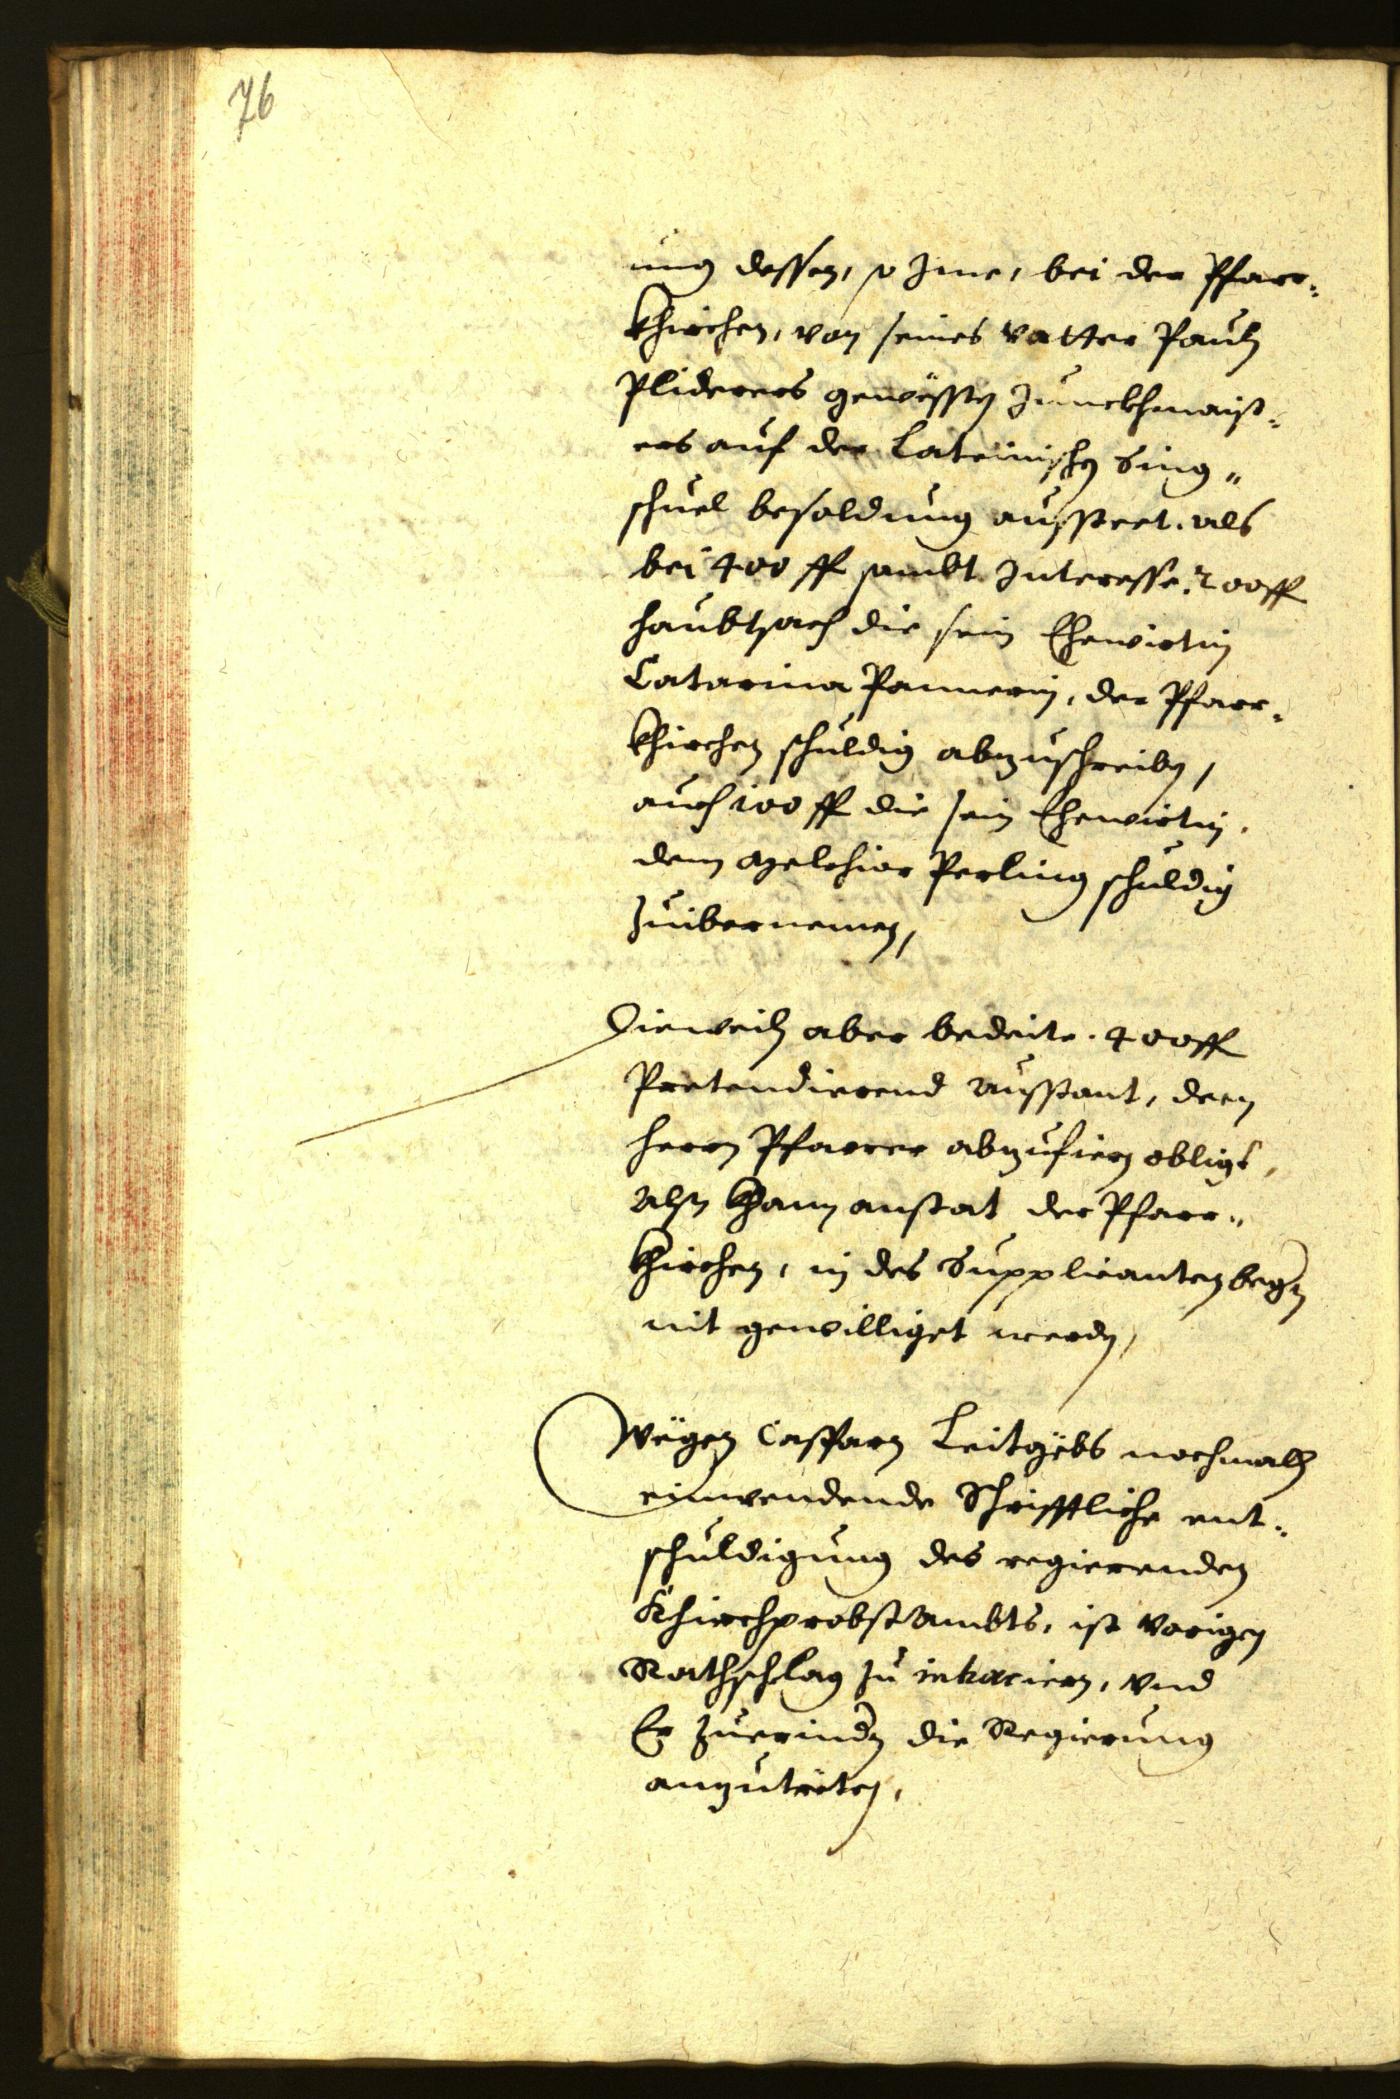 76
ung dessen, so Ime, bei der Pfarr¬
khirchen, von seines Vatter Pauln
Pliderers gewesten Junckhmaist¬
ers auf der Lateinischen Sing¬
schuel besoldung aussteet. als
bei 400 fl sambt Interesse. 200 fl
haubtsach die sein Ehewirtin
Catarina Pannerin, der Pfarr¬
khirchen schuldig abzuschreiben,
auch 100 fl die sein Ehewirtin.
dem Melchior Perling schuldig
zuibernemen,
Dieweiln aber bedeite. 400 fl
Pretendierend ausstant, dem
herrn Pfarrer abzufiern obligt,
Alsn khann anstat der Pfarr¬
khirchen, in des Supplicanten begern
nit gewilliget werden,
Wegen Casparn Leitgebs nochmaln
einwendende Schrifftliche ent¬
schuldigung des regierenden
Khirchprobst Ambts, ist vorigen
Rathschlag zu inhaeriern, und
Er zuerindern die Regierung
anzutreten,